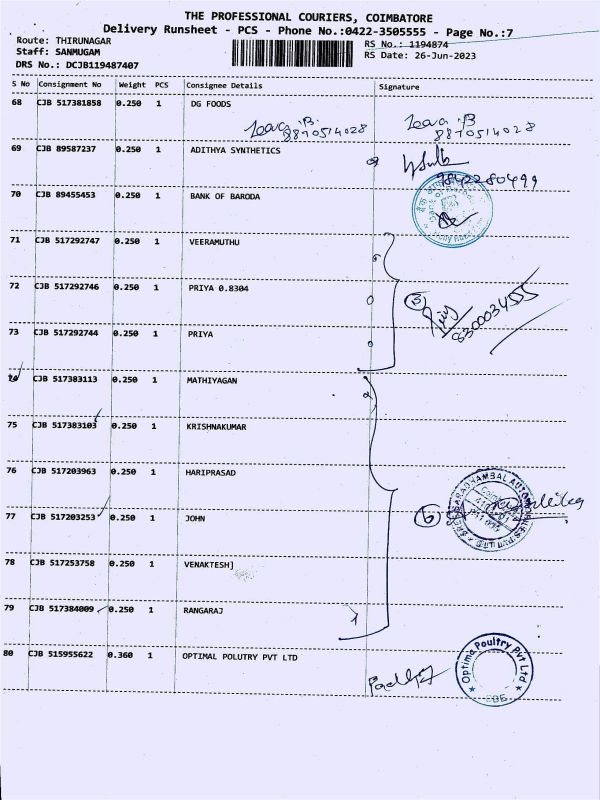 THE PROFESSIONAL COURIERS, COIMBATORE
Delivery Runsheet - PCS - Phone No.:0422-3505555 - Page No.:7
Route: THIRUNAGAR
RS No.: 1194874
Staff: SANMUGAM
RS Date: 26-Jun-2023
DRS No.: DCJB119487407
S No Consignment No Weight PCS Consignee Details Signature
68 CJB 517381858 0.250 1 DG FOODS
8870514028 8870514028
69 CJB 89587237 0.250 1 ADITHYA SYNTHETICS
9842280499
70 CJB 89455453 0.250 1 BANK OF BARODA
71 CJB 517292747 0.250 1 VEERAMUTHU
72 CJB 517292746 0.250 1 PRIYA 0.8304
3
73 CJB 517292744 0.250 1 PRIYA
74 CJB 517383113 0.250 1 MATHIYAGAN
75 CJB 517383103 0.250 1 KRISHNAKUMAR
76 CJB 517203963 0.250 1 HARIPRASAD
77 CJB 517203253 0.250 1 JOHN
6
78 CJB 517253758 0.250 1 VENAKTESH]
79 CJB 517384009 0.250 1 RANGARAJ
80 CJB 515955622 0.360 1 OPTIMAL POLUTRY PVT LTD
Optima Poultry Pvt Ltd
CBE